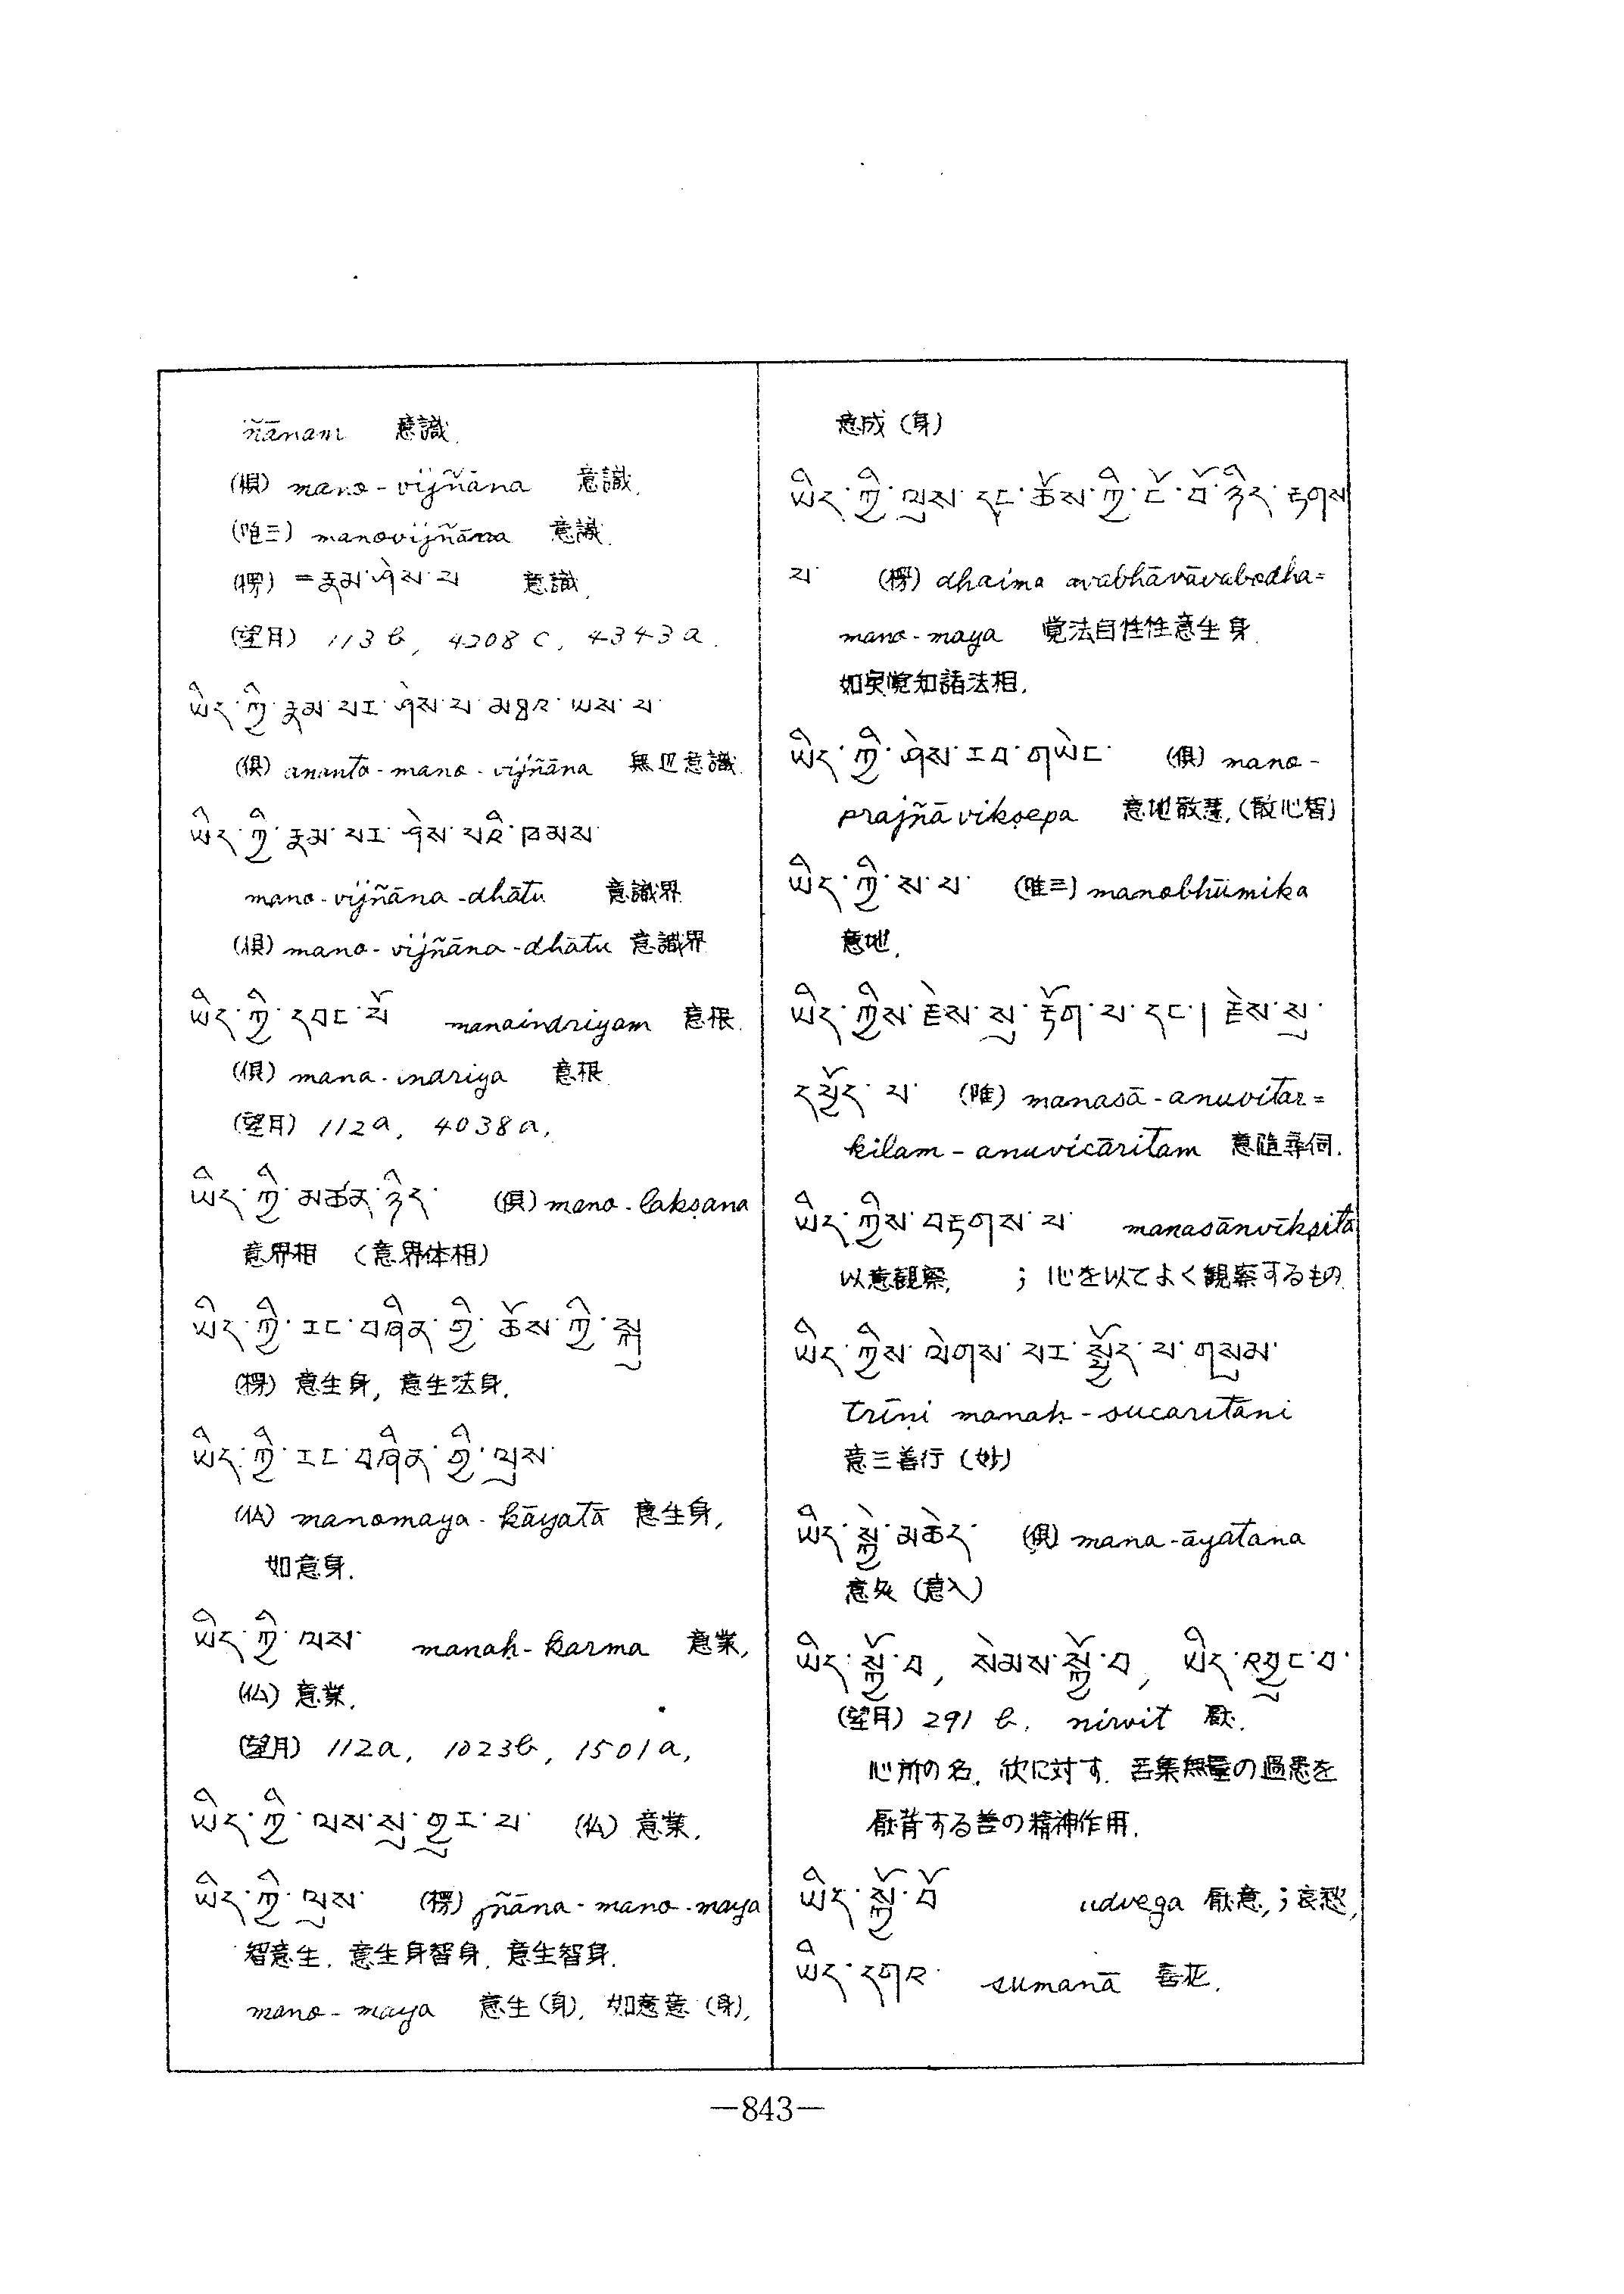 ñānam 意識.
(倶) mano-vijñāna 意識.
(唯三) manovijñāna 意識.
(楞) =རྣམ་ཤེས་པ 意識.
(望月) 113b, 4208c, 4343a.
ཡིད་ཀྱི་རྣམ་པར་ཤེས་པ་མཐར་ཡས་པ་
(倶) ananta-mano-vijñāna 無辺意識.
ཡིད་ཀྱི་རྣམ་པར་ཤེས་པའི་ཁམས་
mano-vijñāna-dhātu 意識界
(倶) mano-vijñāna-dhātu 意識界
ཡིད་ཀྱི་དབང་པོ manaindriyam 意根.
(倶) mana-indriya 意根
(望月) 112a, 4038a,
ཡིད་ཀྱི་མཚན་ཉིད་ (倶) mano-lakṣana
意界相 (意界体相)
ཡིད་ཀྱི་རང་བཞིན་གྱི་ཆོས་ཀྱི་སྐུ
(楞) 意生身, 意生法身.
ཡིད་ཀྱི་རང་བཞིན་གྱི་ལུས་
(仏) manomaya-kāyatā 意生身,
如意身.
ཡིད་ཀྱི་ལས་ manaḥ-karma 意業,
(仏) 意業.
(望月) 112a, 1023b, 1501a,
ཡིད་ཀྱི་ལས་སུ་གྱུར་པ་ (仏) 意業.
ཡིད་ཀྱི་ལུས་ (楞) jñāna-mano-maya
智意生, 意生身智身, 意生智身.
mano-maya 意生(身), 如意意(身),
意成(身)
ཡིད་ཀྱི་ལུས་དང་ཆོས་ཀྱི་ངོ་བོ་ཉིད་རྟགས
པ་ (楞) dhaima avabhāvāvabodha=
mano-maya 覚法自性性意生身.
如実覚知諸法相.
ཡིད་ཀྱི་ཤེས་རབ་གཡེང་ (倶) mano-
prajñā vikṣepa 意地散慧, (散心智)
ཡིད་ཀྱི་ས་པ་ (唯三) manobhūmika
意地.
ཡིད་ཀྱིས་རྗེས་སུ་རྟོག་པ་དང་། རྗེས་སུ་
དཔྱོད་པ་ (唯) manasā-anuvitar=
kilam-anuvicāritam 意随尋伺.
ཡིད་ཀྱིས་བརྟགས་པ་ manasānvīkṣitā
以意観察, ; 心を以てよく観察するもの
ཡིད་ཀྱིས་ལེགས་པར་སྤྱོད་པ་གསུམ་
trīṇi manaḥ-sucaritāni
意三善行 (妙)
ཡིད་སྐྱེ་མཆེད་ (倶) mana-āyatana
意処 (意入)
ཡིད་སྐྱོ་བ, སེམས་སྐྱོ་བ, ཡིད་འབྱུང་བ་
(望月) 291b. nirvit 厭.
心所の名, 欣に対す. 苦集無量の過患を
厭背する善の精神作用.
ཡིད་སྐྱོ་བོ udvega 厭意,; 哀愁,
ཡིད་དགར་ sumanā 善花.
—843—